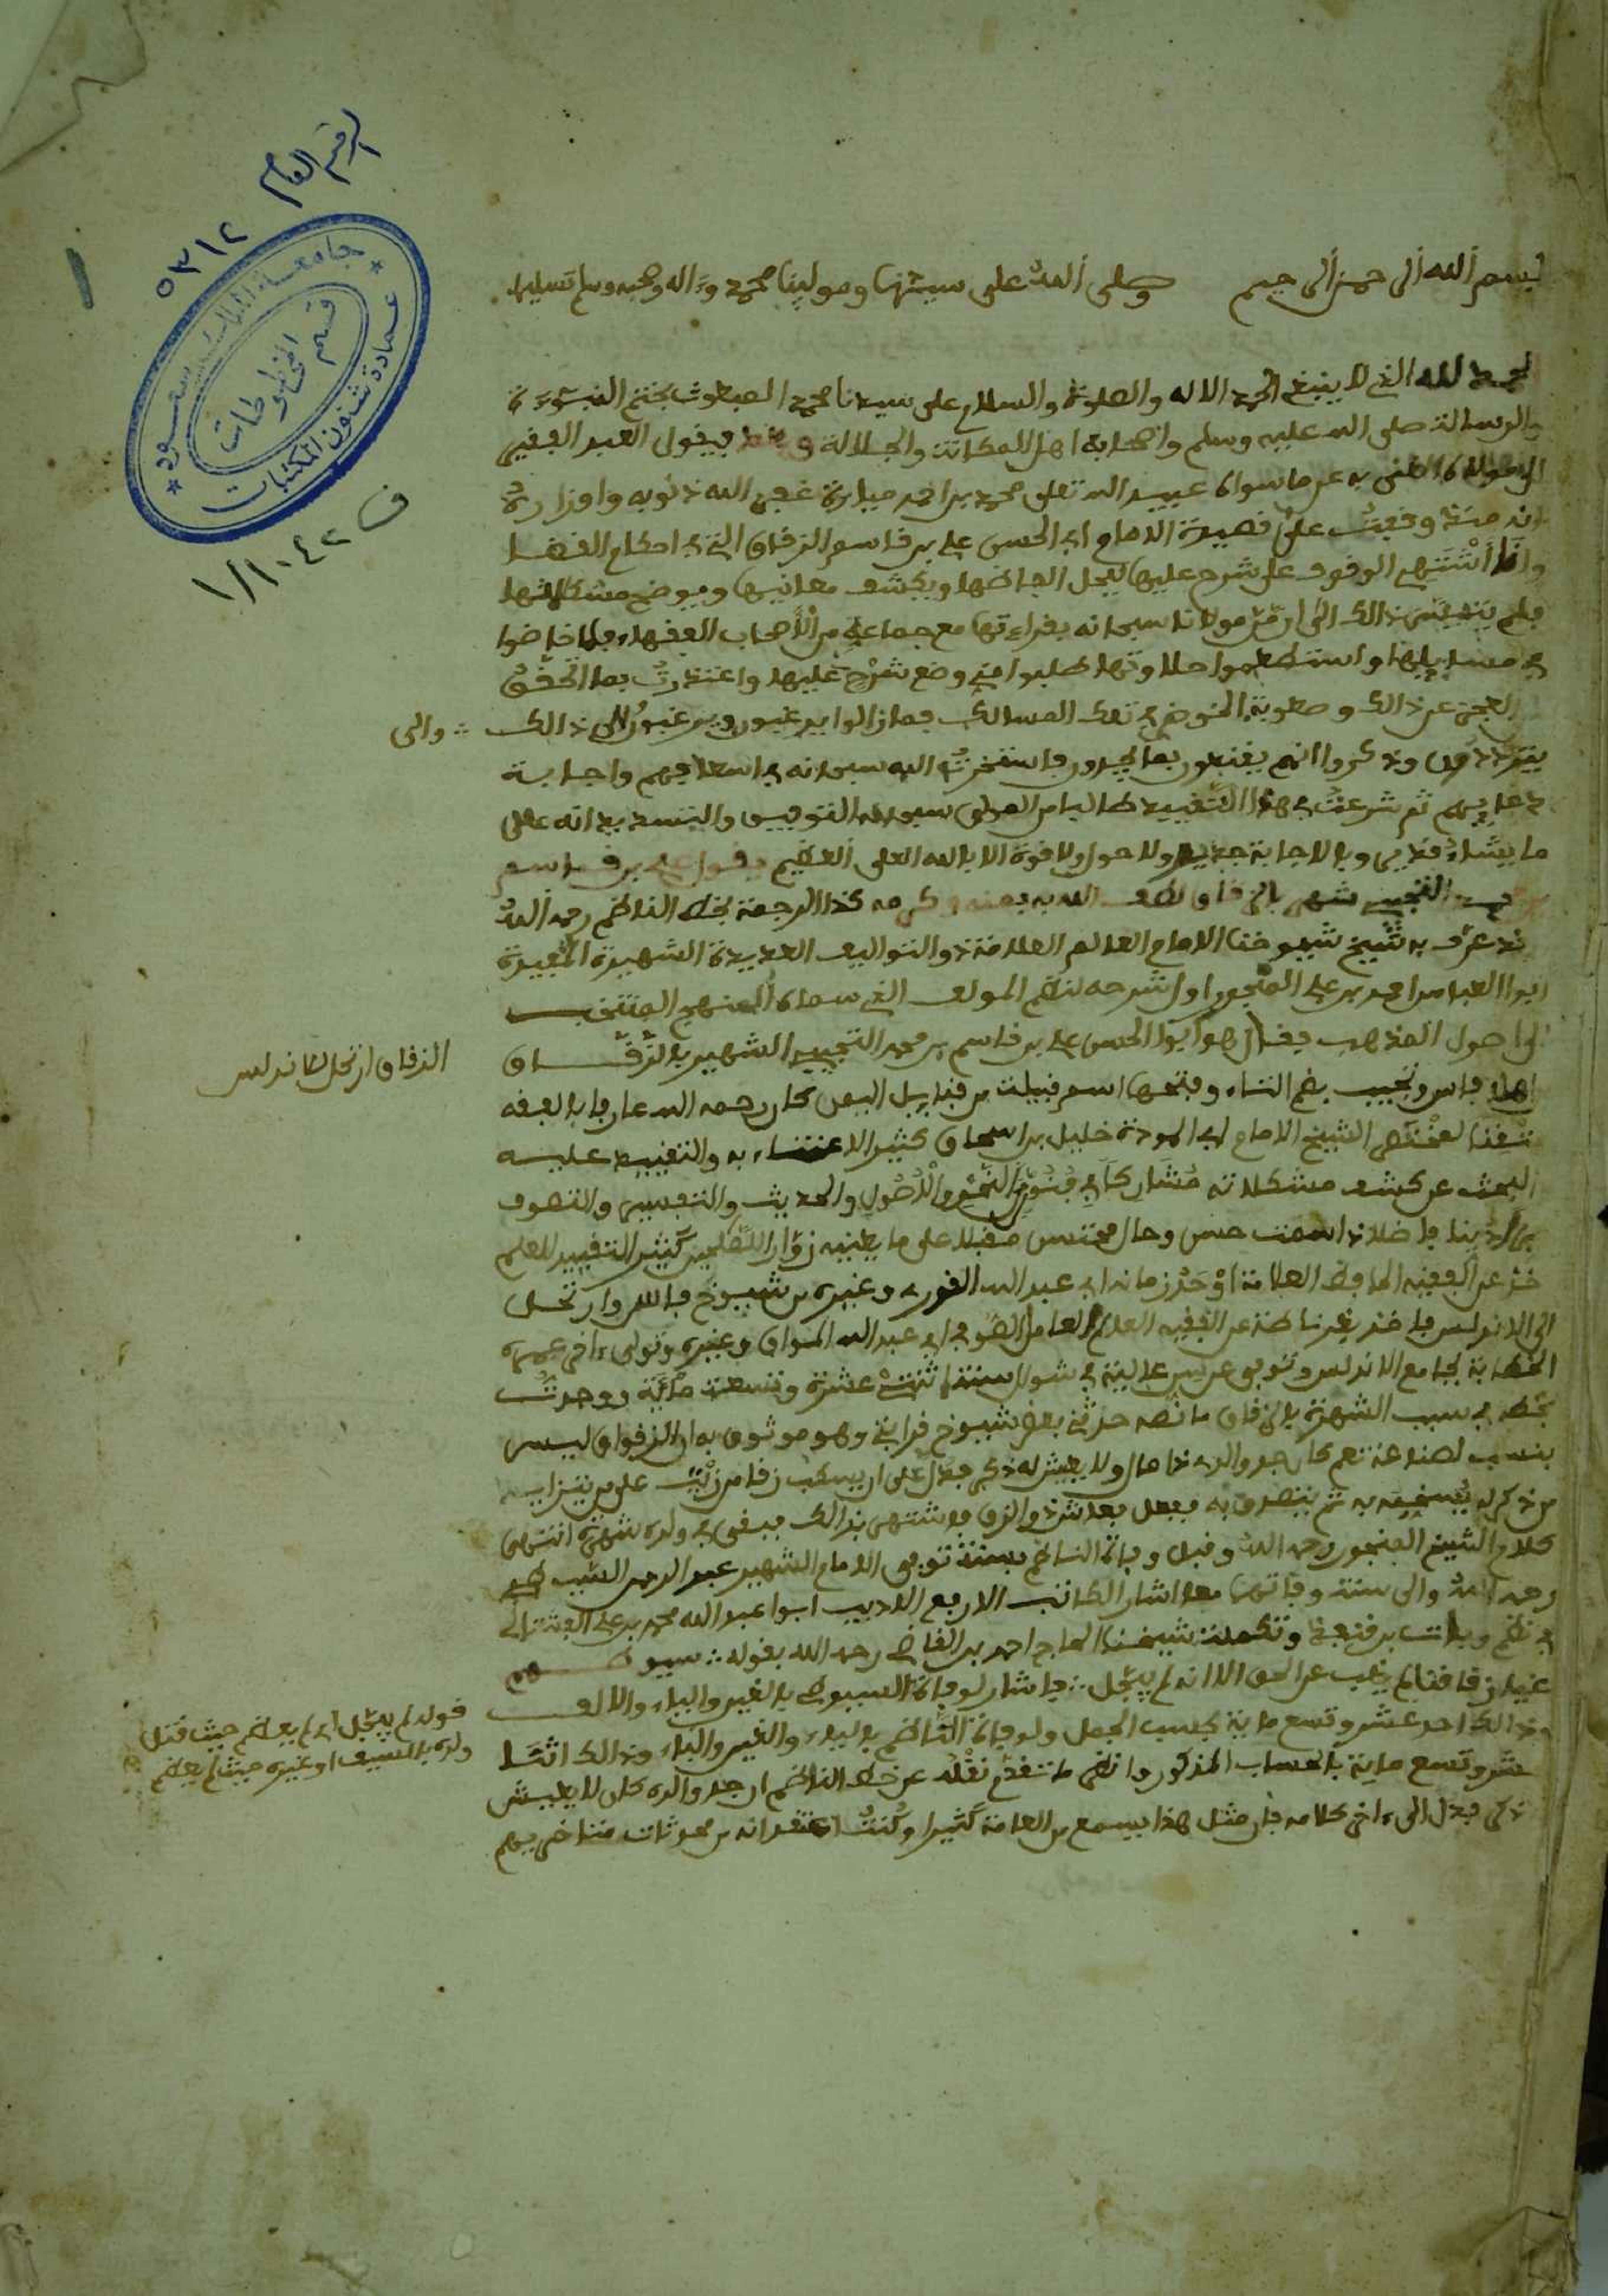 الرقم العام
٥٣١٢
جامعة الملك سعود
عمادة شئون المكتبات
قسم المخطوطات
ف ١/١٠٤٢
١
بسم الله الرحمن الرحيم وصلى الله على سيدنا ومولينا محمد وءاله وصحبه وسلم تسليما
الحمد لله الذي لا ينبغي الحمد الا له والصلوة والسلام على سيدنا محمد المبعوث بختم النبوءة
والرسالة صلى الله عليه وسلم واصحابه اهل المكانة والجلالة وبعد فيقول العبد الفقير
الى مولاه الغني به عمن سواه عبيد الله تعلى محمد بن احمد ميارة غفر الله ذنوبه واوزاره
انه منذ وقفت على قصيدة الامام ابي الحسن علي بن قاسم الزقاق التي في احكام القضا
وانا أشتهي الوقوف على شرح عليها يحل الفاظها ويكشف معانيها ويوضح مشكلاتها
فلم يتفق ذالك الى ان من مولانا سبحانه بقراءتها مع جماعة من الأصحاب الفقهاء فلما خاضوا
في مسايلها واستطعموا حلاوتها طلبوا مني وضع شرح عليها واعتذرت بما تحقق
من العجز عن ذالك وصعوبة الخوض في تلك المسالك فما زالوا يرغبون ويرغبون الي في ذالك ؞ والى
يترددون وذكروا انهم يقنعون بما يجدون فاستخرت الله سبحانه في اسعافهم واجابة
دعايهم ثم شرعت في هذا التقييد طالبا من المولى سبحانه التوفيق والتسديد انه على
ما يشاء قدير وبالاجابة جدير ولا حول ولا قوة الا بالله العلي العظيم يقول علي بن قاسم
التجيبي شهر بالزقاق لطف الله به بمنه وكرمه كذا الترجمة بخط الناظم رحمه الله
قد عرف به شيخ شيوخنا الامام العالم العلامة ذو التواليف العديدة الشهيرة المفيدة
ابوا العباس احمد بن علي المنجور اول شرحه لنظم المولف الذي سماه المنهج المنتخب
الى اصول المذهب فقال هو ابوا الحسن علي بن قاسم بن محمد التجيبي الشهير بالزقاق
الزقاق ارتحل للاندلس
اهل فاس وتجيب بضم التاء وفتحها اسم قبيلة من قبايل اليمن كان رحمه الله عارفا بالفقه
متقنا لمختصر الشيخ الامام ابي المودة خليل بن اسحاق كثير الاعتناء به والتقييد عليه
البحث عن كشف مشكلاته مشاركا في فنون من النحو والأصول والحديث والتفسير والتصوف
دينا فاضلا ذا سمت حسن وحال مقبلا على ما يعنيه زوارا للصالحين كثير التقييد للعلم
اخذ عن الفقيه الحافظ العلامة أوحد زمانه ابي عبد الله القوري وغيره من شيوخ فاس وارتحل
الى الاندلس فاخذ بغرناطة عن الفقيه العالم العامل الصوفي ابي عبد الله المواق وغيره وتولى ءاخر عمره
الخطابة بجامع الاندلس وتوفي عن سن عالية في شوال سنة اثنتي عشرة وتسعة مائة ووجدت
بخطه في سبب الشهرة بالزقاق ما نصه حدثني بعض شيوخ قرابتي وهو موثوق به ان الزقاق ليس
بنسب لهذا نعم كان جد والده ذا مال ولا يعيش له ذكر فدل على ان يسكب زقا من زيت على من يتزايد
من ذكر له يسخنه به ثم يتصدق به ففعل فعاش ذو الزق فاشتهر بذالك فبقي في ولده شهرة انتهى
كلام الشيخ المنجور رحمه الله وقبل وفاة الناظم بسنة توفي الامام الشهير عبد الرحمن السيوطي
رحمه الله والى سنة وفاتهما معا اشار الكاتب الاربع الاديب ابوا عبد الله محمد بن علي الفشتالي
في نظم وفيات بن قنفذ وتكملة شيخنا الحاج احمد بن القاضي رحمه الله بقوله ؞ سيوطيهم
غيا زقاقنا لم يغب عن الحق الا انه لم يبجل ؞ فاشار لوفاة السيوطي بالغين والياء والالف
وذالك احد عشر وتسع ماية بحساب الجمل ولوفاة الناظم بالياء والغين والباء وذالك اثنا
قوله لم يبجل اي لم يعظم حيث قتل
ولده بالسيف او غيره حيث لم يعظم
عشر وتسع ماية بالحساب المذكور وانظم ما تقدم نقله عن خط الناظم ان جد والده كان لا يعيش
ذكر فدل الى ءاخر كلامه فان مثل هذا يسمع من العامة كثيرا وكنت اعتقد انه من محدثات متاخريهم